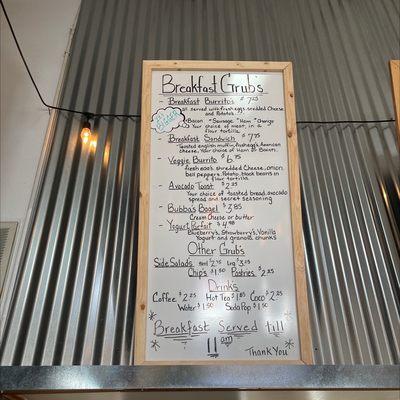 Breakfast Grub's
- Breakfast Burritos $7.25
all served with fresh eggs, shredded Cheese
and Potato.
*Bacon *Sausage *Ham *Chorizo
Your choice of meat, in a
flour tortilla.
- Breakfast Sandwich $7.75
Toasted english muffin, fresh eggs, American
cheese, Your choice of Ham or Bacon.
- Veggie Burrito $6.75
fresh eggs, shredded Cheese, onion,
bell peppers, Potato, black beans in
a flour tortilla.
- Avocado Toast $2.25
Your choice of toasted bread, avocado
spread and secret seasoning
- Bubba's Bagel $3.85
Cream Cheese or butter
- Yogurt Parfait $4.98
Blueberry's, Strawberry's, Vanilla
Yogurt and granola chunks
Other Grub's
Side Salads sml $2.75 Lrg $3.25
Chip's $1.50 Pastries $2.25
Drink's
Coffee $2.25 Hot Tea $1.85 Coco $2.25
Water $1.50 Soda Pop $1.50
Breakfast Served till
11 am
Thank You